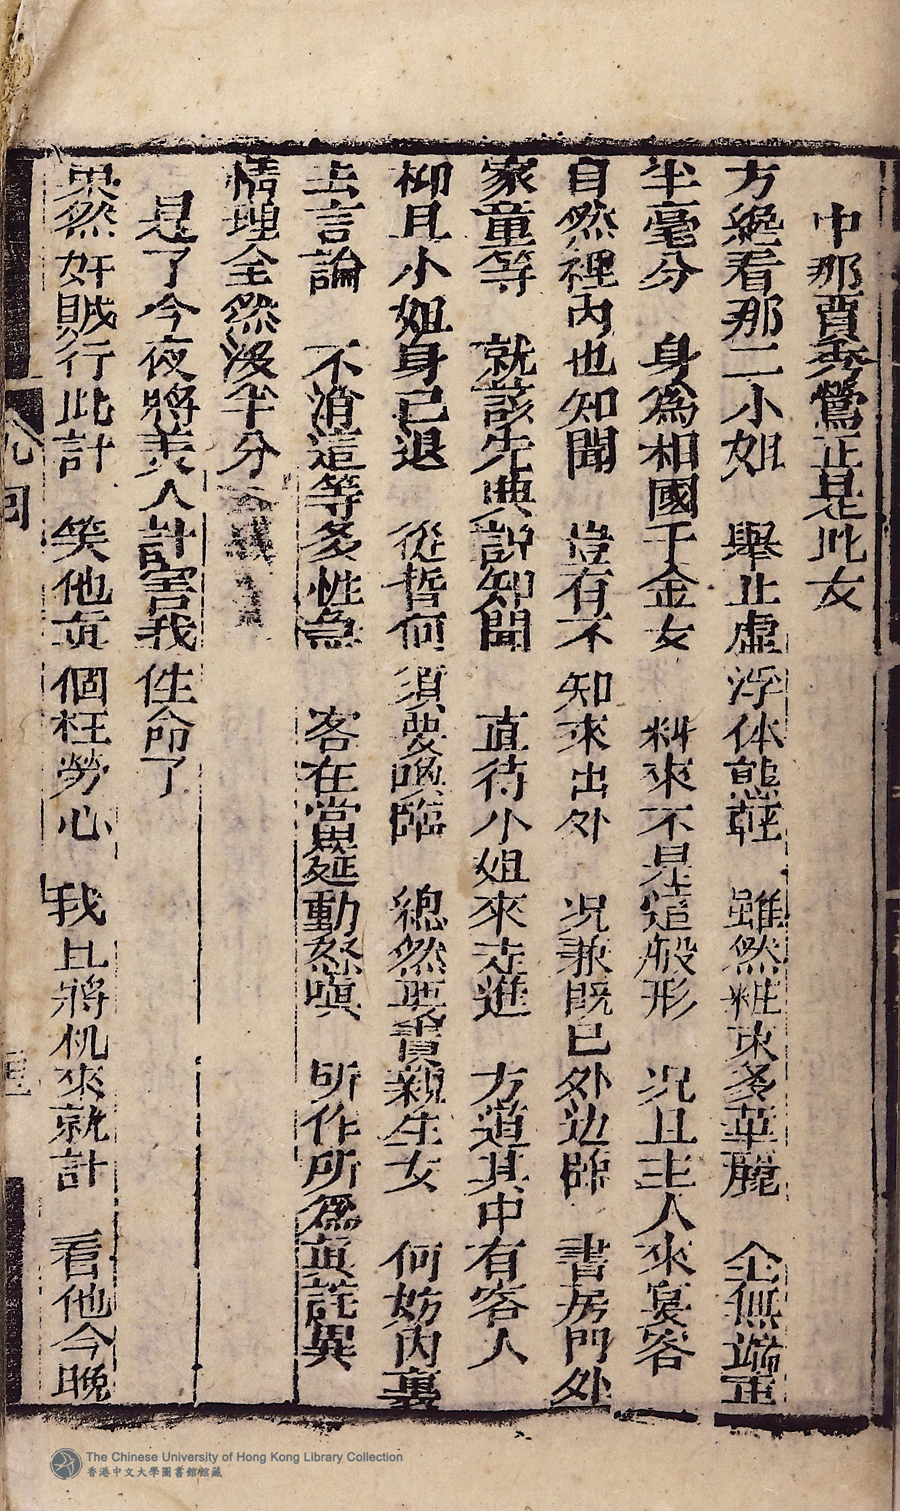 中那賈秀鶯正是此女
方絶看那二小姐 舉止虛浮体態輕 雖然粧束多華麗 仝無端正
半毫分 身為相國千金女 料來不是這般形 况且主人來宴客
自然裡内也知聞 豈有不知來出外 况兼既已外边臨 書房門外
家童等 就該先與說知聞 直待小姐來走進 方道其中有客人
柳且小姐身已退 從暫何須要喚臨 總然要賣親生女 何妨内裏
去言論 不消這等多性急 客在當筵動怒嗔 所作所為真詫異
情理全然沒半分
是了今夜將美人計害我性命了
果然奸賊行此計 笑他真個枉勞心 我且將机來就計 看他今晚
九回
The Chinese University of Hong Kong Library Collection
香港中文大學圖書館館藏